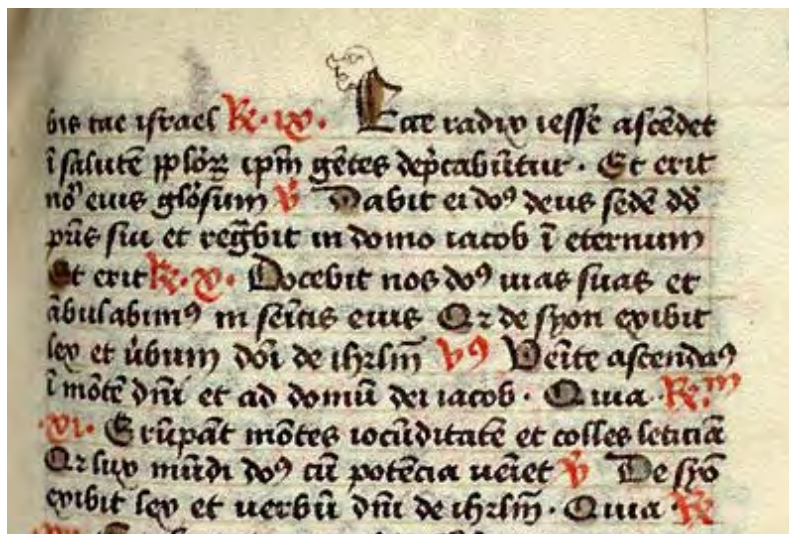 bis tue israel R. ix. Ecce radix iesse ascēdet
ī salutē pplōꝝ ipm̄ gētes dep̄cabūtur. Et erit
nō eius glōsum v̄ Dabit ei do⁹ deus sedē dd̄
pr̄is sui et regn̄bit in domo iacob ī eternum
Et erit R. x. Docebit nos do⁹ uias suas et
ābulabim⁹ in sēitis eius Qꝛ de syon exibit
lex et ūbum dōi de ihrlm̄ v⁹ Veīte ascenda⁹
ī mōtē dn̄i et ad domū dei iacob. Quia. R.ᵐ
.vi. Erūpāt mōtes iocūditatē et colles leticiā
Qꝛ lux mūdi do⁹ cū potēcia ueīet v̄ De syō
exibit lex et uerbū dn̄i de ihrlm̄. Quia. R